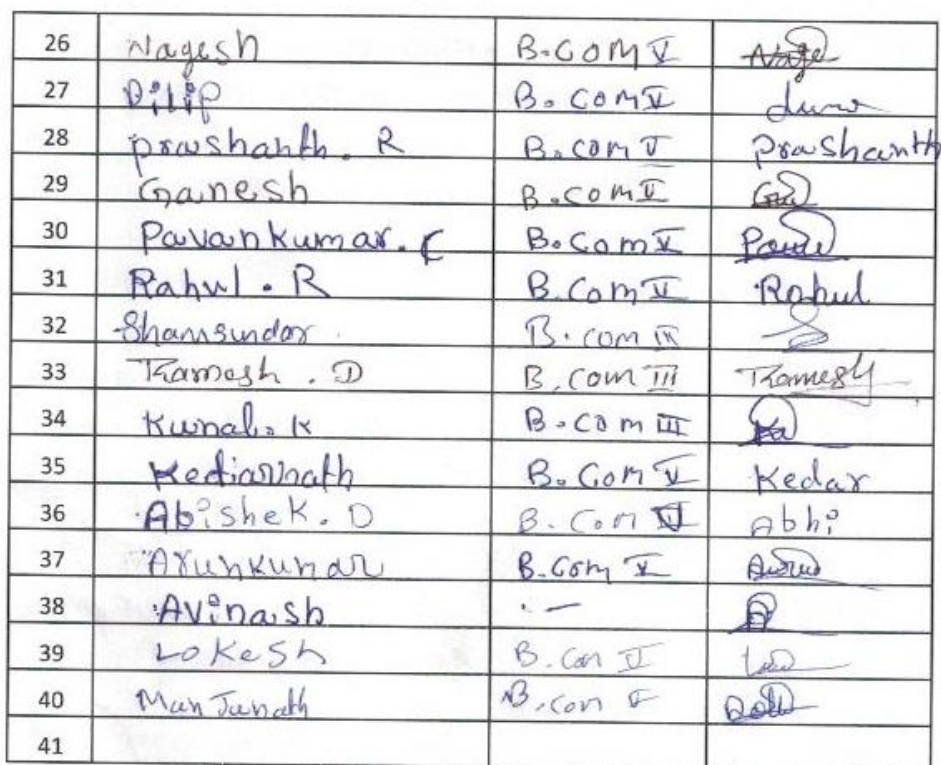 26 Nagesh B.COM V
27 Dilip B.COM V
28 Prashanth. R B.COM V Prashanth
29 Ganesh B.COM V
30 Pavankumar. C B.Com V
31 Rahul. R B.Com V Rahul
32 Shamsundar B.com III
33 Ramesh. D B.com III Ramesh
34 Kunal. K B.com III
35 B.Com V Kedar
36 Abishek. D B.Com Abhi
37 Arunkumar B.Com V
38 Avinash -
39 Lokesh B.Com V
40 Manjunath B.com V
41